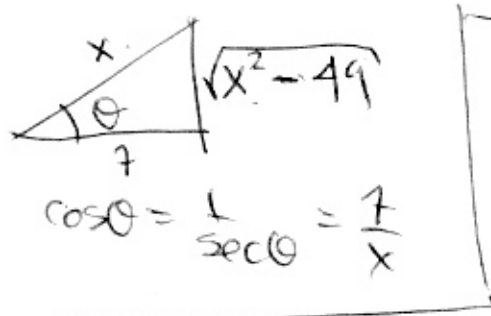 x
√(x² - 49)
θ
7
cosθ = 1/secθ = 7/x